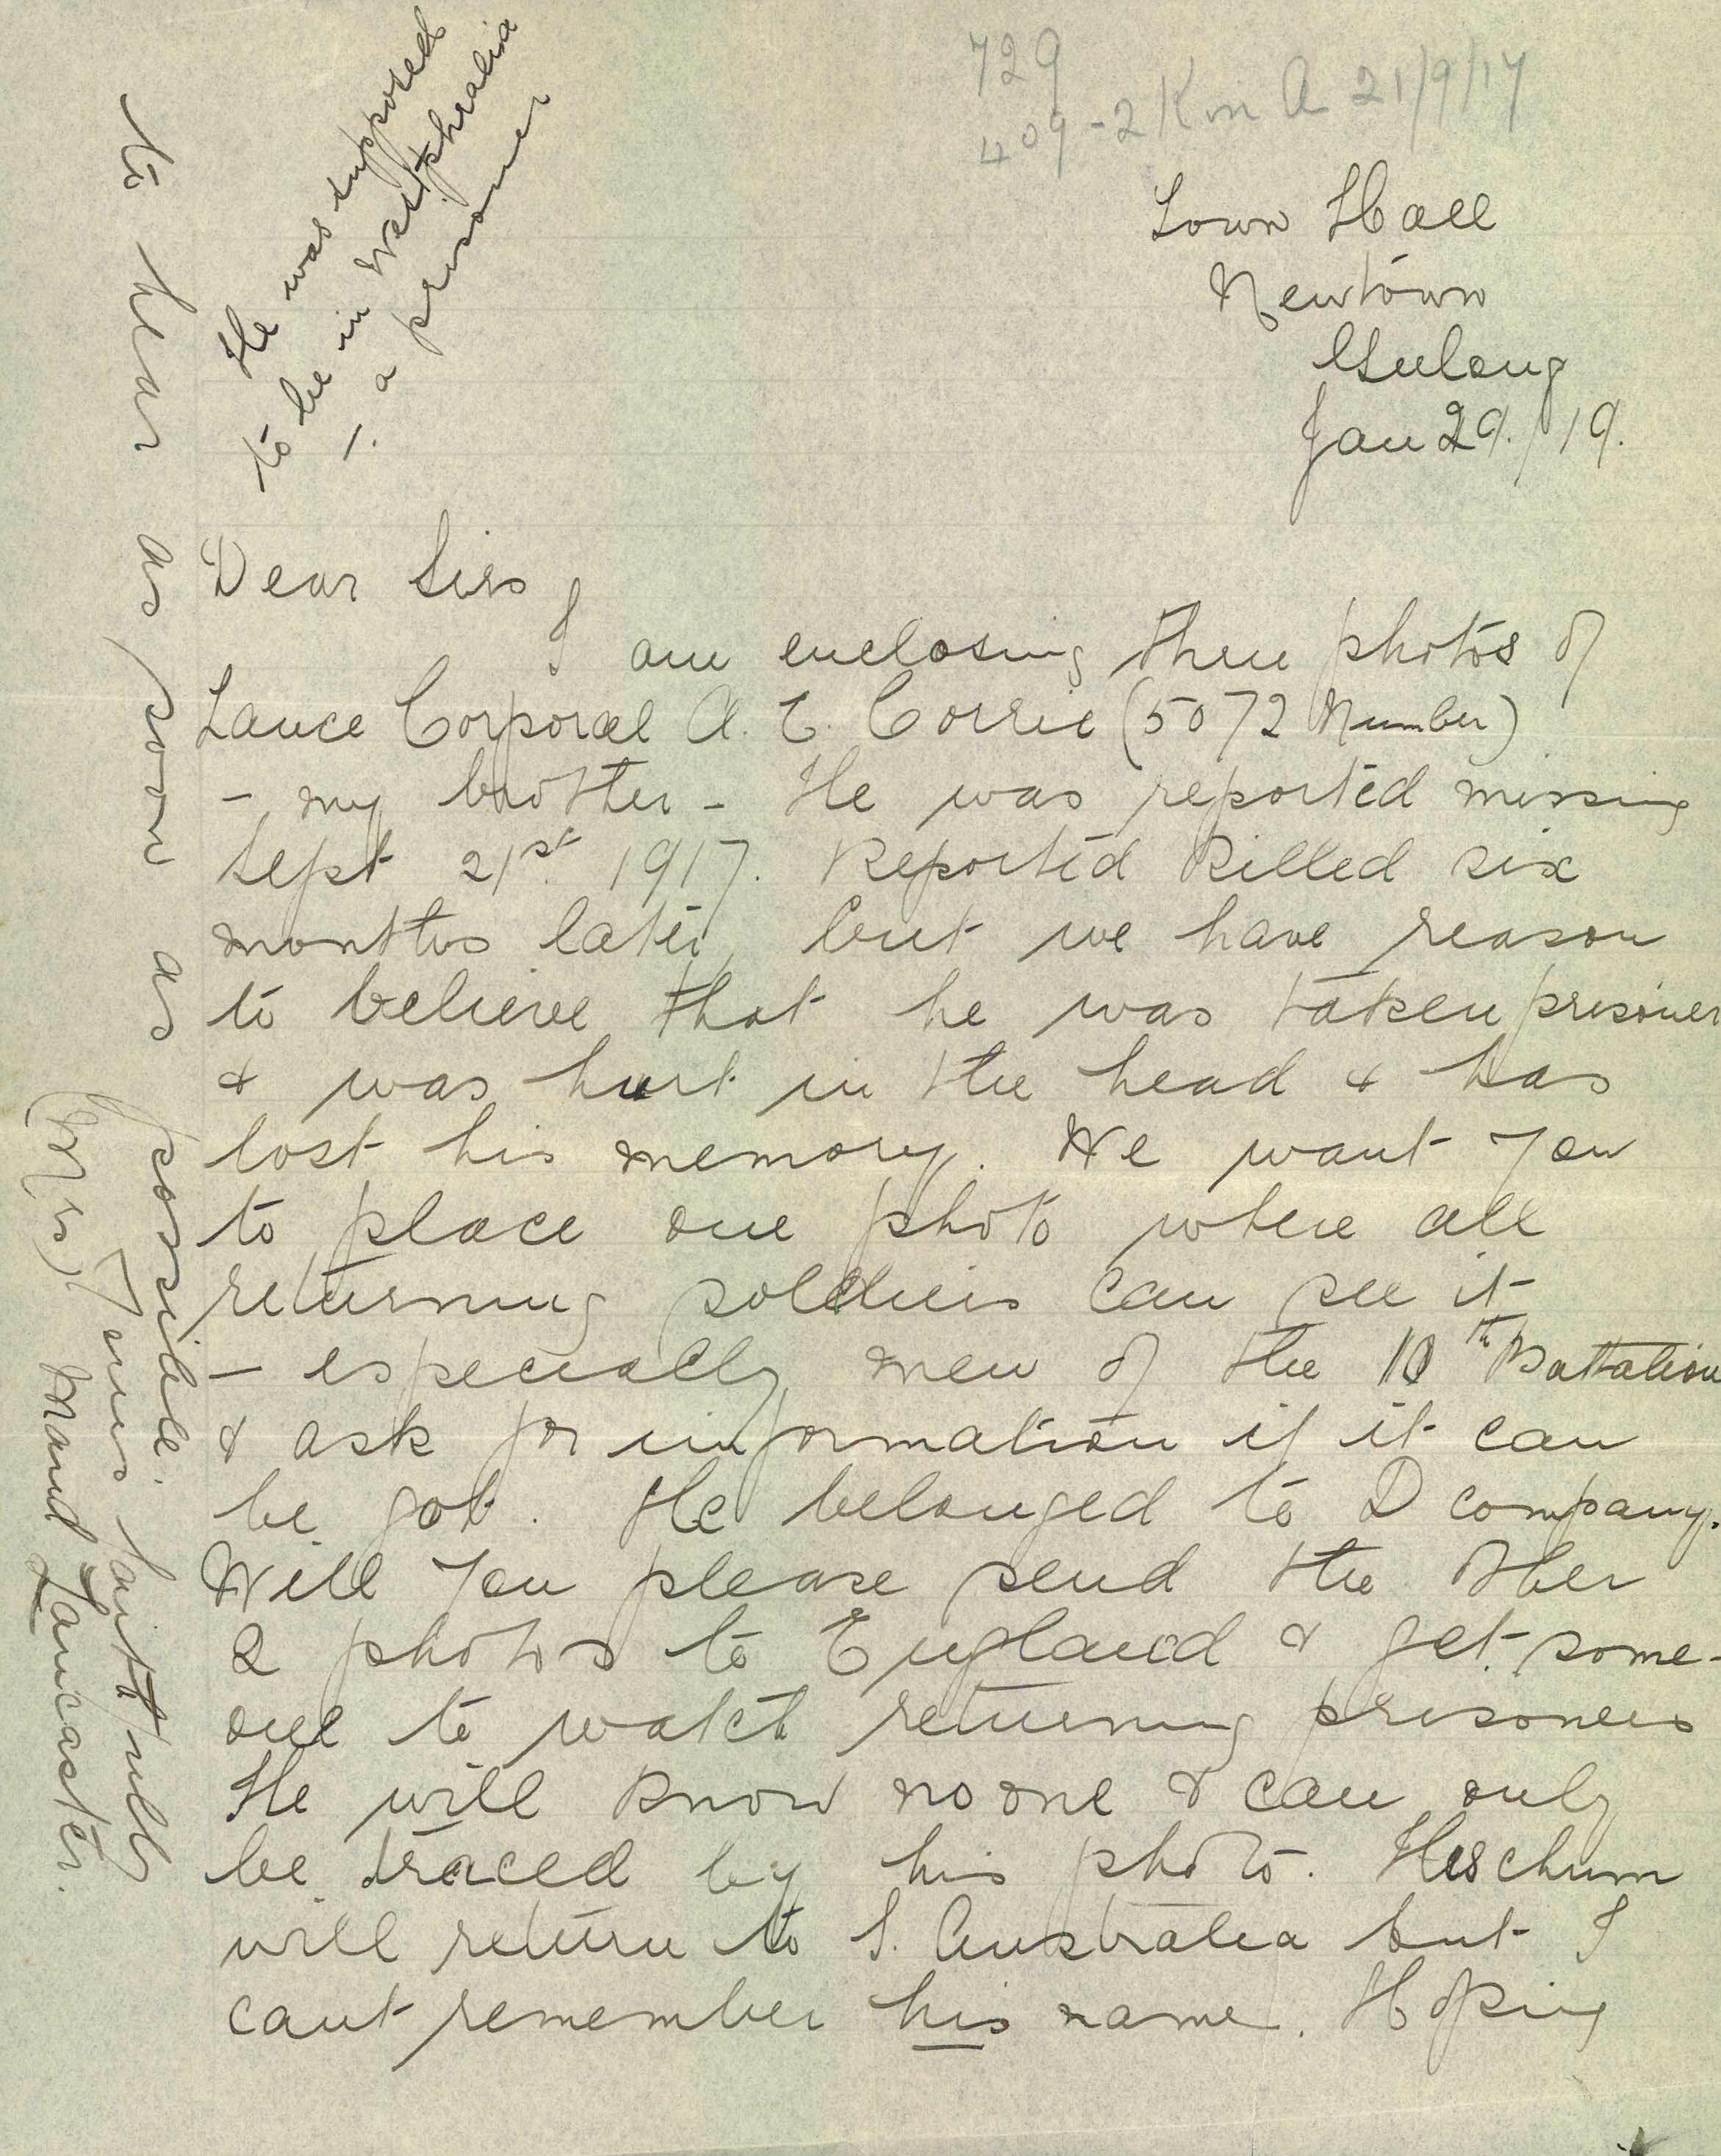 729
409 - 2 K in A 21/9/17
Town Hall
Newtown
Geelong
Jan 29./19.
He was supposed
to be in Westphalia
1. a prisoner
Dear Sirs
I am enclosing three photos of
Lance Corporal A. E. Corrie (5072 Number)
- my brother - He was reported missing
Sept 21st. 1917. Reported Killed six
months later but we have reason
to believe that he was taken prisoner
& was hurt in the head & has
lost his memory. We want you
to place one photo where all
returning soldiers can see it
- especially men of the 10th Battalion
& ask for information if it can
be got. He belonged to D company.
Will you please send the other
2 photos to England & get some-
one to watch returning prisoners
He will know no one & can only
be traced by his photo. His chum
will return to S. Australia but I
cant remember his name. Hoping
to hear as soon as possible.
Yours faithfully
(Mrs) Maud Lancaster.